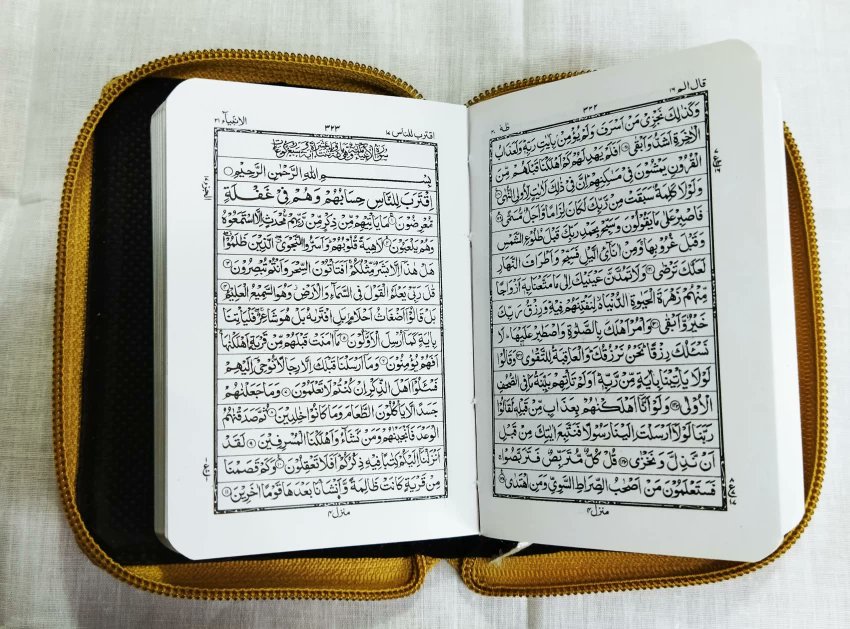 قال الم ١٦ ٣٢٢ طٰهٰ ٢٠
وَكَذٰلِكَ نَجْزِيْ مَنْ اَسْرَفَ وَلَمْ يُؤْمِنْۢ بِاٰيٰتِ رَبِّهٖ وَلَعَذَابُ
الْاٰخِرَةِ اَشَدُّ وَاَبْقٰى ۝ اَفَلَمْ يَهْدِ لَهُمْ كَمْ اَهْلَكْنَا قَبْلَهُمْ مِّنَ
الْقُرُوْنِ يَمْشُوْنَ فِيْ مَسٰكِنِهِمْ اِنَّ فِيْ ذٰلِكَ لَاٰيٰتٍ لِّاُولِي النُّهٰى ۝
وَلَوْلَا كَلِمَةٌ سَبَقَتْ مِنْ رَّبِّكَ لَكَانَ لِزَامًا وَّاَجَلٌ مُّسَمًّى ۝
فَاصْبِرْ عَلٰى مَا يَقُوْلُوْنَ وَسَبِّحْ بِحَمْدِ رَبِّكَ قَبْلَ طُلُوْعِ الشَّمْسِ
وَقَبْلَ غُرُوْبِهَا وَمِنْ اٰنَآئِ الَّيْلِ فَسَبِّحْ وَاَطْرَافَ النَّهَارِ
لَعَلَّكَ تَرْضٰى ۝ وَلَا تَمُدَّنَّ عَيْنَيْكَ اِلٰى مَا مَتَّعْنَا بِهٖٓ اَزْوَاجًا
مِّنْهُمْ زَهْرَةَ الْحَيٰوةِ الدُّنْيَا لِنَفْتِنَهُمْ فِيْهِ وَرِزْقُ رَبِّكَ
خَيْرٌ وَّاَبْقٰى ۝ وَأْمُرْ اَهْلَكَ بِالصَّلٰوةِ وَاصْطَبِرْ عَلَيْهَا لَا
نَسْـَٔلُكَ رِزْقًا نَحْنُ نَرْزُقُكَ وَالْعَاقِبَةُ لِلتَّقْوٰى ۝ وَقَالُوْا
لَوْلَا يَاْتِيْنَا بِاٰيَةٍ مِّنْ رَّبِّهٖ اَوَلَمْ تَاْتِهِمْ بَيِّنَةُ مَا فِي الصُّحُفِ
الْاُوْلٰى ۝ وَلَوْ اَنَّآ اَهْلَكْنٰهُمْ بِعَذَابٍ مِّنْ قَبْلِهٖ لَقَالُوْا
رَبَّنَا لَوْلَآ اَرْسَلْتَ اِلَيْنَا رَسُوْلًا فَنَتَّبِعَ اٰيٰتِكَ مِنْ قَبْلِ
اَنْ نَّذِلَّ وَنَخْزٰى ۝ قُلْ كُلٌّ مُّتَرَبِّصٌ فَتَرَبَّصُوْا
فَسَتَعْلَمُوْنَ مَنْ اَصْحٰبُ الصِّرَاطِ السَّوِيِّ وَمَنِ اهْتَدٰى ۝
منزل ٤
اقترب للناس ١٧ ٣٢٣ الانبيآء ٢١
بِسْمِ اللهِ الرَّحْمٰنِ الرَّحِيْمِ
اِقْتَرَبَ لِلنَّاسِ حِسَابُهُمْ وَهُمْ فِيْ غَفْلَةٍ
مُّعْرِضُوْنَ ۝ مَا يَاْتِيْهِمْ مِّنْ ذِكْرٍ مِّنْ رَّبِّهِمْ مُّحْدَثٍ اِلَّا اسْتَمَعُوْهُ
وَهُمْ يَلْعَبُوْنَ ۝ لَاهِيَةً قُلُوْبُهُمْ وَاَسَرُّوا النَّجْوَى الَّذِيْنَ ظَلَمُوْا
هَلْ هٰذَآ اِلَّا بَشَرٌ مِّثْلُكُمْ اَفَتَاْتُوْنَ السِّحْرَ وَاَنْتُمْ تُبْصِرُوْنَ ۝
قٰلَ رَبِّيْ يَعْلَمُ الْقَوْلَ فِي السَّمَآءِ وَالْاَرْضِ وَهُوَ السَّمِيْعُ الْعَلِيْمُ ۝
بَلْ قَالُوْٓا اَضْغَاثُ اَحْلَامٍ بَلِ افْتَرٰىهُ بَلْ هُوَ شَاعِرٌ فَلْيَاْتِنَا
بِاٰيَةٍ كَمَآ اُرْسِلَ الْاَوَّلُوْنَ ۝ مَآ اٰمَنَتْ قَبْلَهُمْ مِّنْ قَرْيَةٍ اَهْلَكْنٰهَا
اَفَهُمْ يُؤْمِنُوْنَ ۝ وَمَآ اَرْسَلْنَا قَبْلَكَ اِلَّا رِجَالًا نُّوْحِيْٓ اِلَيْهِمْ
فَسْـَٔلُوْٓا اَهْلَ الذِّكْرِ اِنْ كُنْتُمْ لَا تَعْلَمُوْنَ ۝ وَمَا جَعَلْنٰهُمْ
جَسَدًا لَّا يَاْكُلُوْنَ الطَّعَامَ وَمَا كَانُوْا خٰلِدِيْنَ ۝ ثُمَّ صَدَقْنٰهُمُ
الْوَعْدَ فَاَنْجَيْنٰهُمْ وَمَنْ نَّشَآءُ وَاَهْلَكْنَا الْمُسْرِفِيْنَ ۝ لَقَدْ
اَنْزَلْنَآ اِلَيْكُمْ كِتٰبًا فِيْهِ ذِكْرُكُمْ اَفَلَا تَعْقِلُوْنَ ۝ وَكَمْ قَصَمْنَا
مِنْ قَرْيَةٍ كَانَتْ ظَالِمَةً وَّاَنْشَاْنَا بَعْدَهَا قَوْمًا اٰخَرِيْنَ ۝
منزل ٤